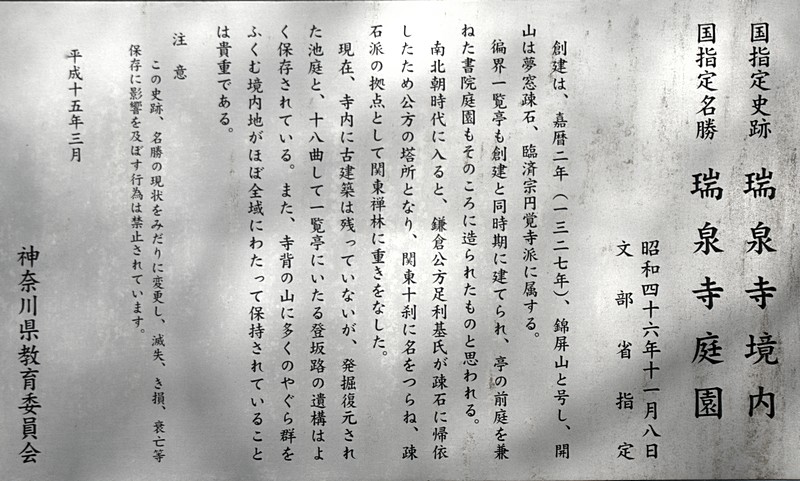 国指定史跡 瑞泉寺境内
国指定名勝 瑞泉寺庭園
昭和四十六年十一月八日
文部省指定
創建は、嘉暦二年（一三二七年）、錦屏山と号し、開
山は夢窓疎石、臨済宗円覚寺派に属する。
徧界一覧亭も創建と同時期に建てられ、亭の前庭を兼
ねた書院庭園もそのころに造られたものと思われる。
南北朝時代に入ると、鎌倉公方足利基氏が疎石に帰依
したため公方の塔所となり、関東十刹に名をつらね、疎
石派の拠点として関東禅林に重きをなした。
現在、寺内に古建築は残っていないが、発掘復元され
た池庭と、十八曲して一覧亭にいたる登坂路の遺構はよ
く保存されている。また、寺背の山に多くのやぐら群を
ふくむ境内地がほぼ全域にわたって保持されていること
は貴重である。
注意
この史跡、名勝の現状をみだりに変更し、滅失、き損、衰亡等
保存に影響を及ぼす行為は禁止されています。
平成十五年三月
神奈川県教育委員会